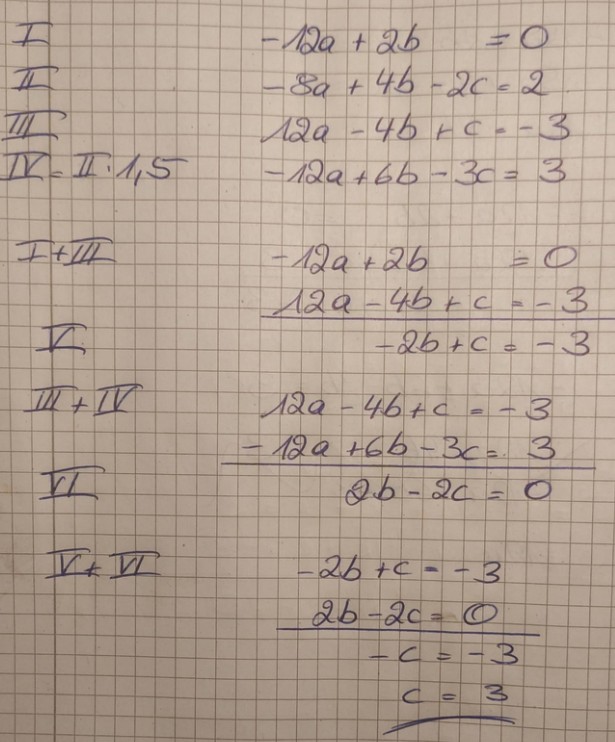 I -12a + 2b = 0
II -8a + 4b - 2c = 2
III 12a - 4b + c = -3
IV = II · 1,5 -12a + 6b - 3c = 3
I + III -12a + 2b = 0
12a - 4b + c = -3
V -2b + c = -3
III + IV 12a - 4b + c = -3
-12a + 6b - 3c = 3
VI 2b - 2c = 0
V + VI -2b + c = -3
2b - 2c = 0
-c = -3
c = 3